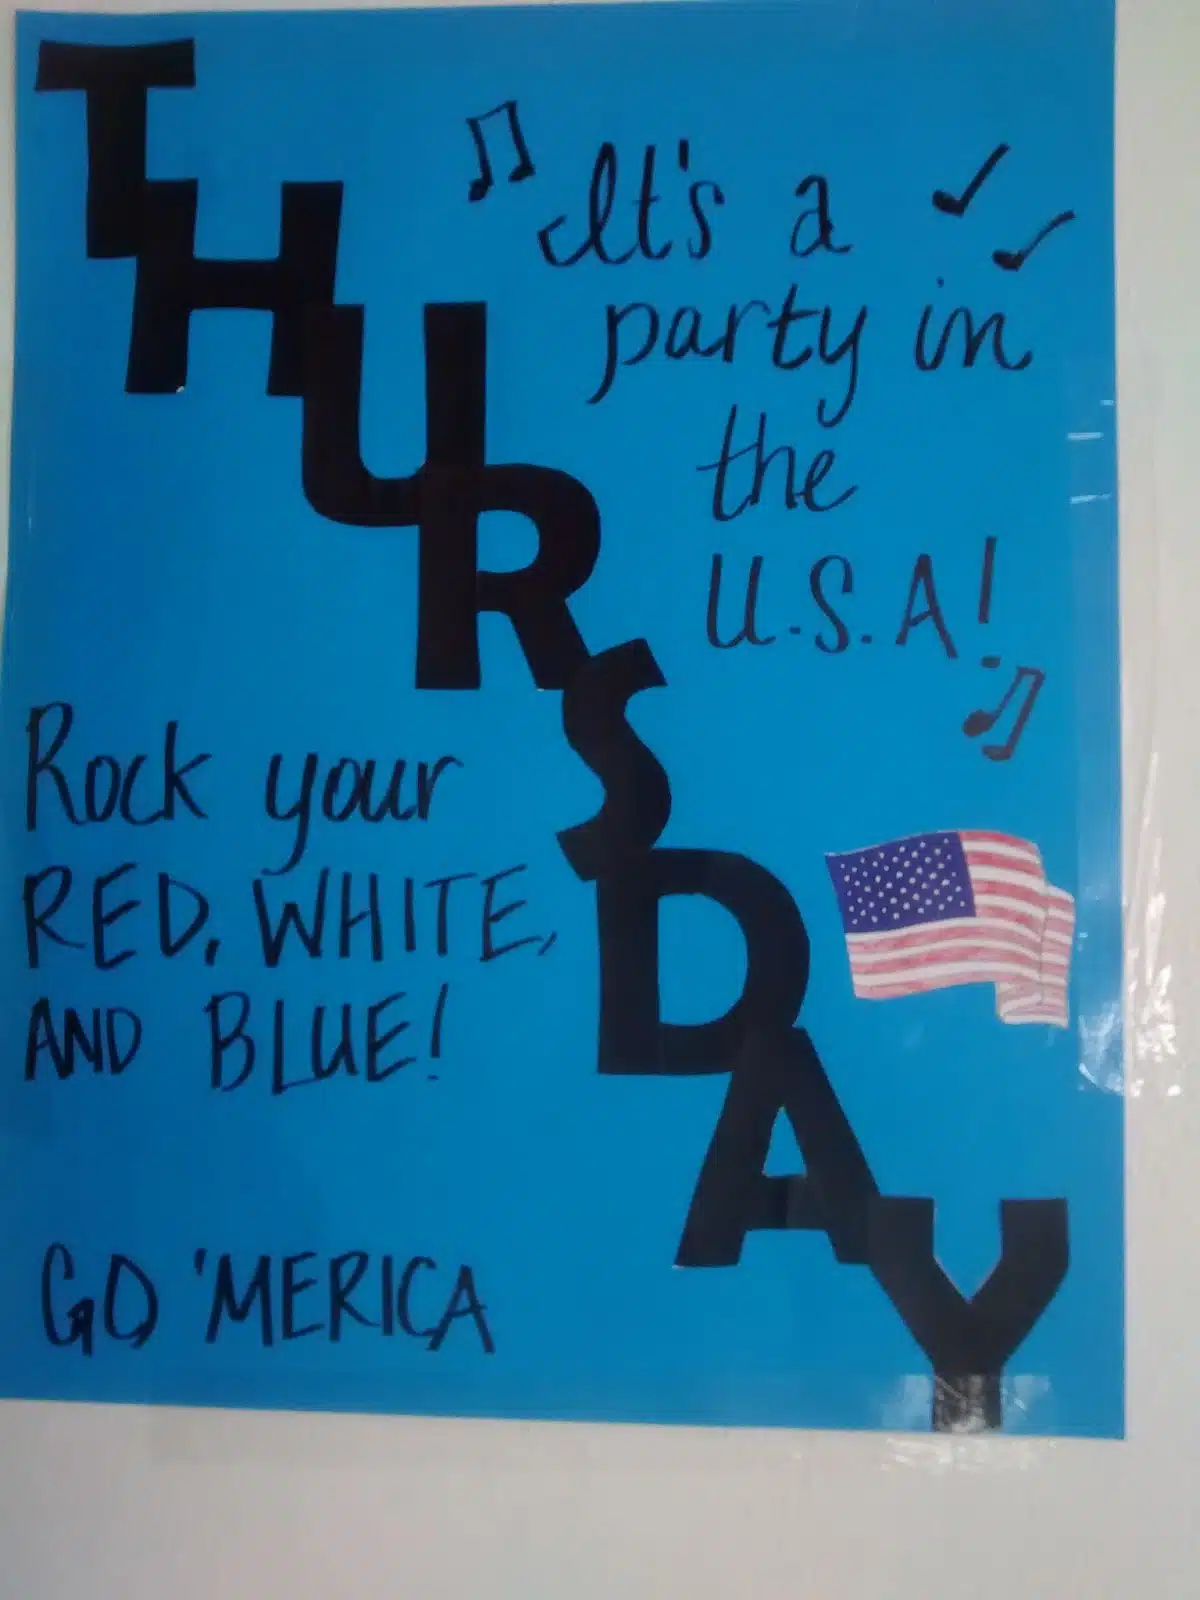 THURSDAY
It's a
party in
the
U.S.A!
Rock your
RED, WHITE,
AND BLUE!
GO 'MERICA